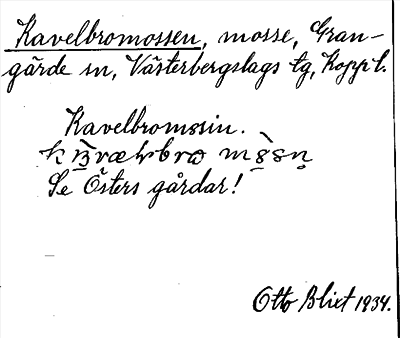 Kavelbromossen, mosse, Gran-
gärde sn, Västerbergslags tg, Kopp l.
Kavelbromssin.
Se Östers gårdar!
Otto Blixt 1934.